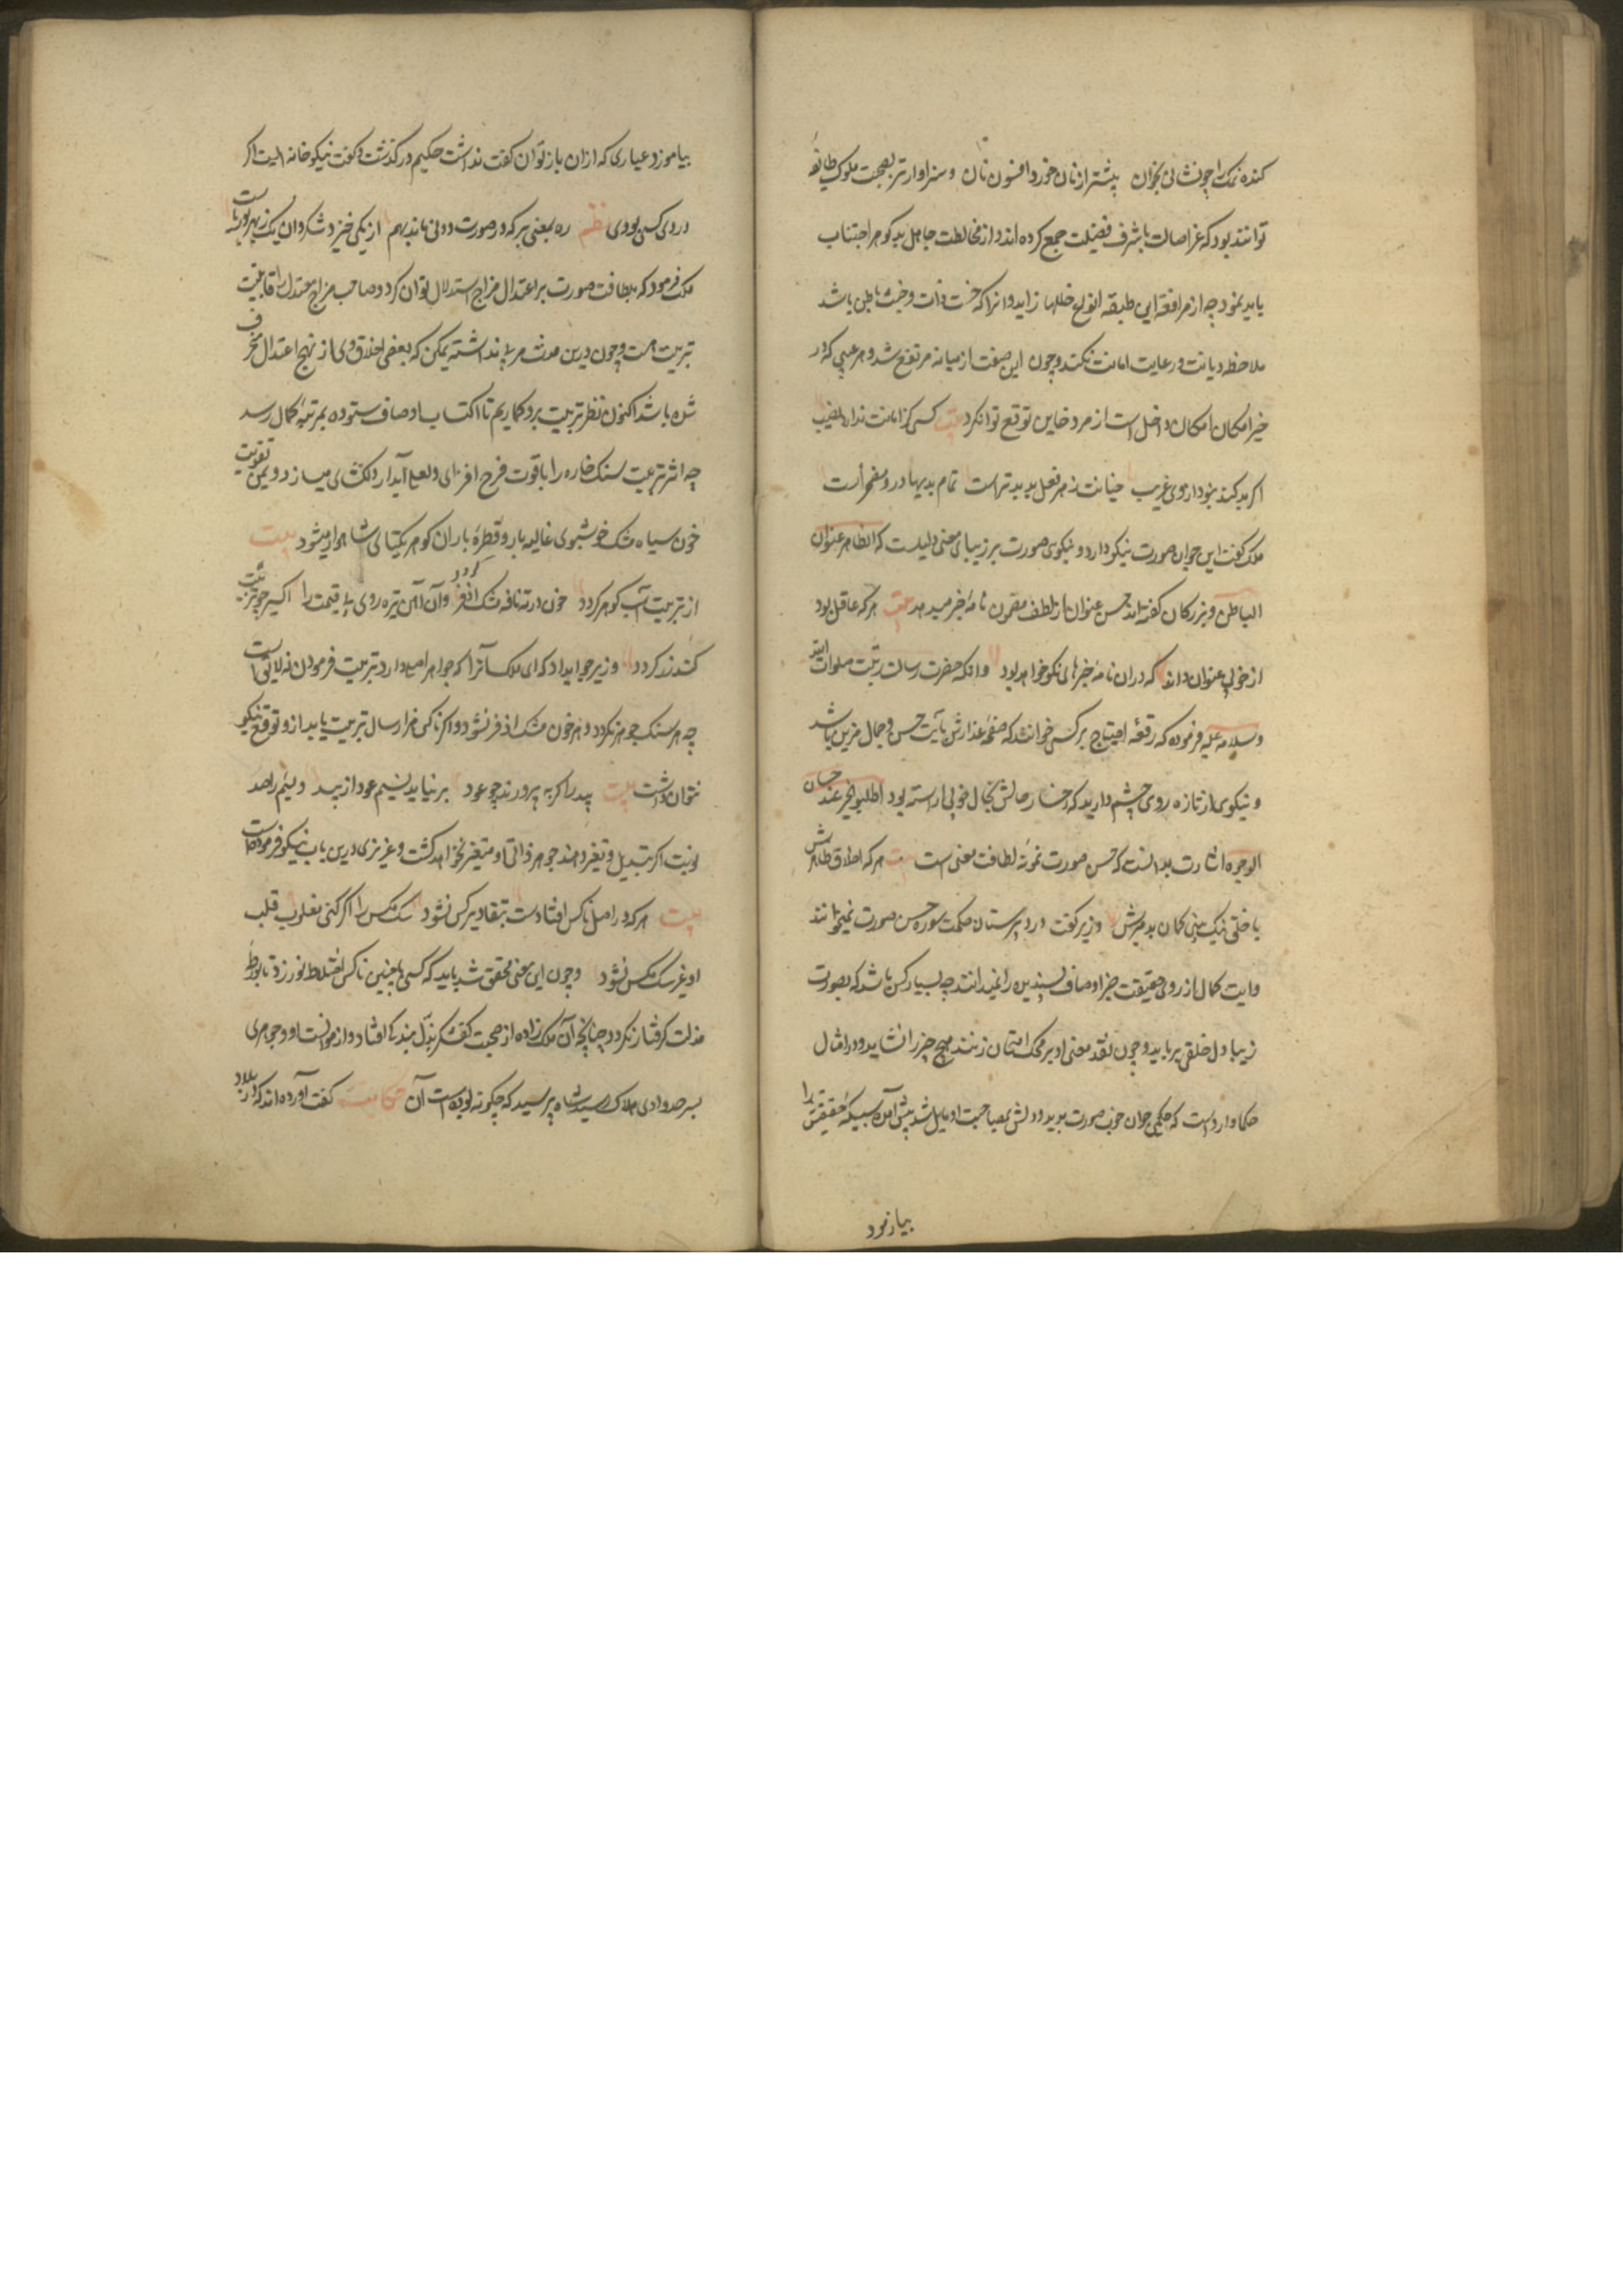 کنده نمک را چو نشانی بخوان پیشتر از نان خورد افسون نان و سزاوارتر بصحبت ملوک طائفه
توانند بود که عز اصالت با شرف فضیلت جمع کرده اند و از مخالطت جاهل بد کوهر اجتناب
باید نمود چه از مرافقه این طبقه انواع خللها زاید و انرا که خست ذات و خبث باطن باشد
ملاحظه دیانت و رعایت امانت نکند و چون این صفت از میانه مرتفع شد و هر عیبی که در
خیر امکان امکان داخل است از مرد خاین توقع توان کرد بیت کسی کز امانت ندارد نصیب
اکر بد کند نبود از وی غریب خیانت ز هر فعل بد بدتر است تمام بدیها درو مضمرست
ملک کفت این جوان صورت نیکو دارد و نیکوی صورت بر زیبای معنی دلیلست که الظاهر عنوان
الباطن و بزرکان کفته اند حسن عنوان از لطف مضمون نامه خبر میدهد بیت هر که عاقل بود
از خوبی عنوان داند که دران نامه خبرهای نکو خواهد بود وانکه حضرت رسالت رتبت صلوات الله
و سلامه علیه فرموده که رقعه احتیاج بر کسی خوانند که صفحه عذارش بآیت حسن و جمال مزین باشد
و نیکوی از تازه روی چشم دارید که رخسار حالش بخال خوبی اراسته بود اطلبوا الخیر عند حسان
الوجوه اشارت بدانست که حسن صورت نمونه لطافت معنی است بیت هر که اخلاق ظاهرش
با خلق نیک بینی کمان بد مبرش وزیر کفت در دبیرستان حکمت سوره حسن صورت نمیخوانند
و ایت کمال از روی حقیقت جز اوصاف پسندیده را نمیدانند چه بسیار کس باشد که بصورت
زیبا دل خلقی برباید و چون نقد معنی او بر محک امتحان زنند هیچ چیز را نشاید و در امثال
حکما وارد است که حکیمی جوان خوب صورت بدید و دلش بمصاحبت او مایل شد پیش آمد سبیکه حقیقتش را
بیازمود
بیاموزد عیاری که ازان باز توان کفت نداشت حکیم درکذشت و کفت نیکو خانه ایست اکر
دروی کسی بودی نظم ره بمعنی بر که در صورت دو نی ماند بهم از یکی خیزد شکر وان یک ز بهر بوریاست
ملک فرمود که بلطافت صورت بر اعتدال مزاج استدلال توان کرد و صاحب مزاج معتدل را قابلیت
تربیت هست و چون درین مدت مربی نداشته یمکن که بعضی اخلاق وی از نهج اعتدال منحرف
شده باشد اکنون نظر تربیت برو کماریم تا اکتساب اوصاف ستوده بمرتبه کمال رسد
چه اثر تربیت سنک خاره را یاقوت فرح افزای و لعل آبدار دلکشای میسازد و بیمن تقویت
خون سیاه مشک خوشبوی غالیه بار و قطره باران کوهر یکتای شاهوار میشود بیت
از تربیت آب کوهر کردد خون در ته نافه مشک اذفر کردد وان آهن تیره روی بی قیمت را اکسیر چو تربیت
کند زر کردد وزیر جواب داد که ای ملک آنرا که جواهر اصلی ندارد تربیت فرمودن نه لایق است
چه هر سنک جوهر نکردد و هر خون مشک اذفر نشود و اکر ناکسی هزار سال تربیت یابد ازو توقع نیکوی
نتوان داشت بیت بید را کر به پرورند چو عود بر نیاید نسیم عود از بید
لونیت اکر تبدیل و تغیر دهند جوهر ذاتی او متغیر نخواهد کشت و عزیزی درین باب نیکو فرموده است
بیت هر که در اصل ناکس افتادست بتقادیر کس نشود سک مکس را اکر کنی مقلوب قلب
او غیر سک مکس نشود و چون این معنی محقق شد باید که کسی با چنین ناکس اختلاط نورزد تا بورطه
مذلت کرفتار نکردد چنانچه آن ملک زاده از صحبت کفشکر بذل بندکی افتاد و از موانست او و جوهری
بسر حد وادی هلاک رسید شاه پرسید که چکونه بوده است آن حکایت کفت آورده اند که در بلاد